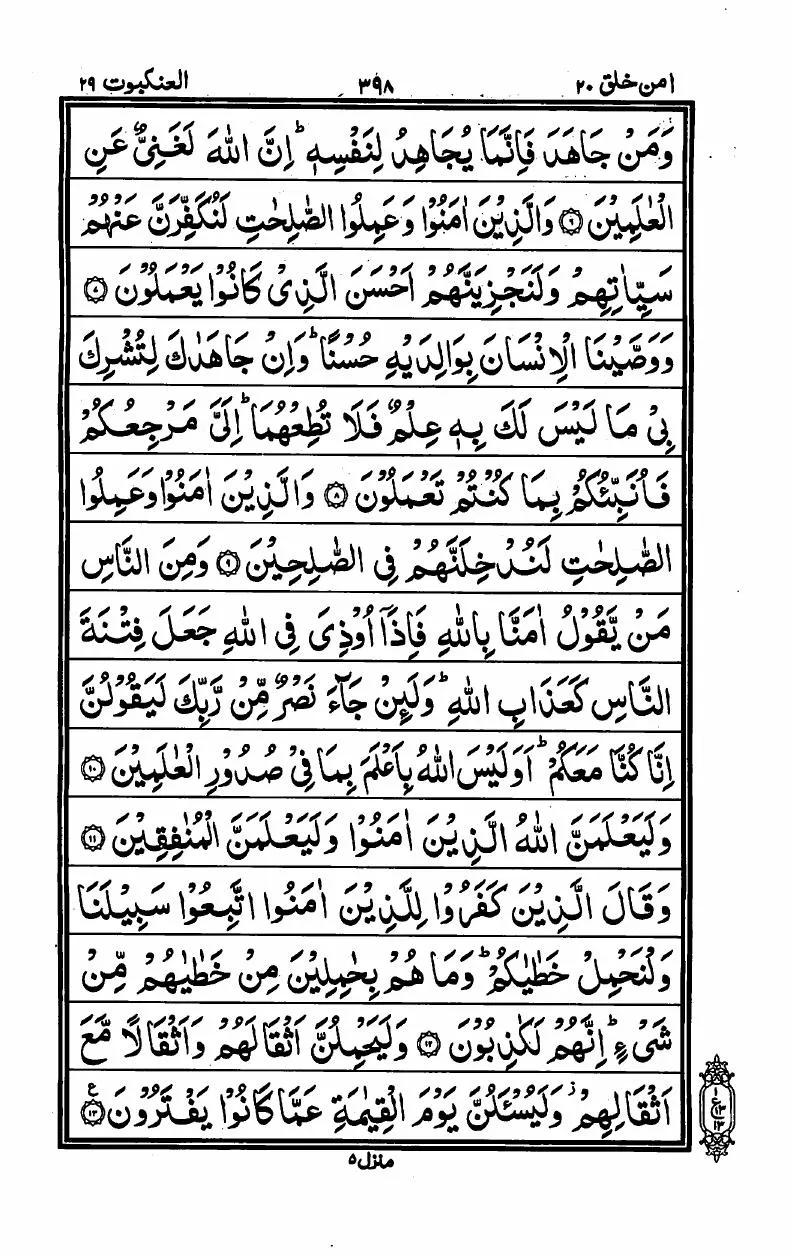 امن خلق ۲۰ ۳۹۸ العنکبوت ۲۹
وَمَنۡ جَاهَدَ فَاِنَّمَا يُجَاهِدُ لِنَفۡسِهٖ ؕ اِنَّ اللّٰهَ لَغَنِىٌّ عَنِ
الۡعٰلَمِيۡنَ ﴿۶﴾ وَالَّذِيۡنَ اٰمَنُوۡا وَعَمِلُوا الصّٰلِحٰتِ لَنُكَفِّرَنَّ عَنۡهُمۡ
سَيِّاٰتِهِمۡ وَلَنَجۡزِيَنَّهُمۡ اَحۡسَنَ الَّذِىۡ كَانُوۡا يَعۡمَلُوۡنَ ﴿۷﴾
وَوَصَّيۡنَا الۡاِنۡسَانَ بِوَالِدَيۡهِ حُسۡنًا ؕ وَاِنۡ جَاهَدٰكَ لِتُشۡرِكَ
بِىۡ مَا لَيۡسَ لَكَ بِهٖ عِلۡمٌ فَلَا تُطِعۡهُمَا ؕ اِلَىَّ مَرۡجِعُكُمۡ
فَاُنَبِّئُكُمۡ بِمَا كُنۡتُمۡ تَعۡمَلُوۡنَ ﴿۸﴾ وَالَّذِيۡنَ اٰمَنُوۡا وَعَمِلُوا
الصّٰلِحٰتِ لَنُدۡخِلَنَّهُمۡ فِى الصّٰلِحِيۡنَ ﴿۹﴾ وَمِنَ النَّاسِ
مَنۡ يَّقُوۡلُ اٰمَنَّا بِاللّٰهِ فَاِذَاۤ اُوۡذِىَ فِى اللّٰهِ جَعَلَ فِتۡنَةَ
النَّاسِ كَعَذَابِ اللّٰهِ ؕ وَلَئِنۡ جَآءَ نَصۡرٌ مِّنۡ رَّبِّكَ لَيَقُوۡلُنَّ
اِنَّا كُنَّا مَعَكُمۡ ؕ اَوَلَيۡسَ اللّٰهُ بِاَعۡلَمَ بِمَا فِىۡ صُدُوۡرِ الۡعٰلَمِيۡنَ ﴿۱۰﴾
وَلَيَعۡلَمَنَّ اللّٰهُ الَّذِيۡنَ اٰمَنُوۡا وَلَيَعۡلَمَنَّ الۡمُنٰفِقِيۡنَ ﴿۱۱﴾
وَقَالَ الَّذِيۡنَ كَفَرُوۡا لِلَّذِيۡنَ اٰمَنُوا اتَّبِعُوۡا سَبِيۡلَنَا
وَلۡنَحۡمِلۡ خَطٰيٰكُمۡ ؕ وَمَا هُمۡ بِحٰمِلِيۡنَ مِنۡ خَطٰيٰهُمۡ مِّنۡ
شَىۡءٍ ؕ اِنَّهُمۡ لَكٰذِبُوۡنَ ﴿۱۲﴾ وَلَيَحۡمِلُنَّ اَثۡقَالَهُمۡ وَاَثۡقَالًا مَّعَ
اَثۡقَالِهِمۡ ۫ وَلَيُسۡـَٔلُنَّ يَوۡمَ الۡقِيٰمَةِ عَمَّا كَانُوۡا يَفۡتَرُوۡنَ ﴿۱۳﴾ ع
۱
ع ۱۳
۱۳
منزل ۵